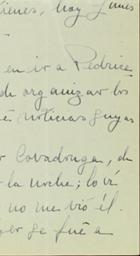 viernes, hoy lunes
en ir a Pedrice
de organizar los
noticias suyas
Covadonga, de
la noche; lo vi
no me vió él.
se fué a